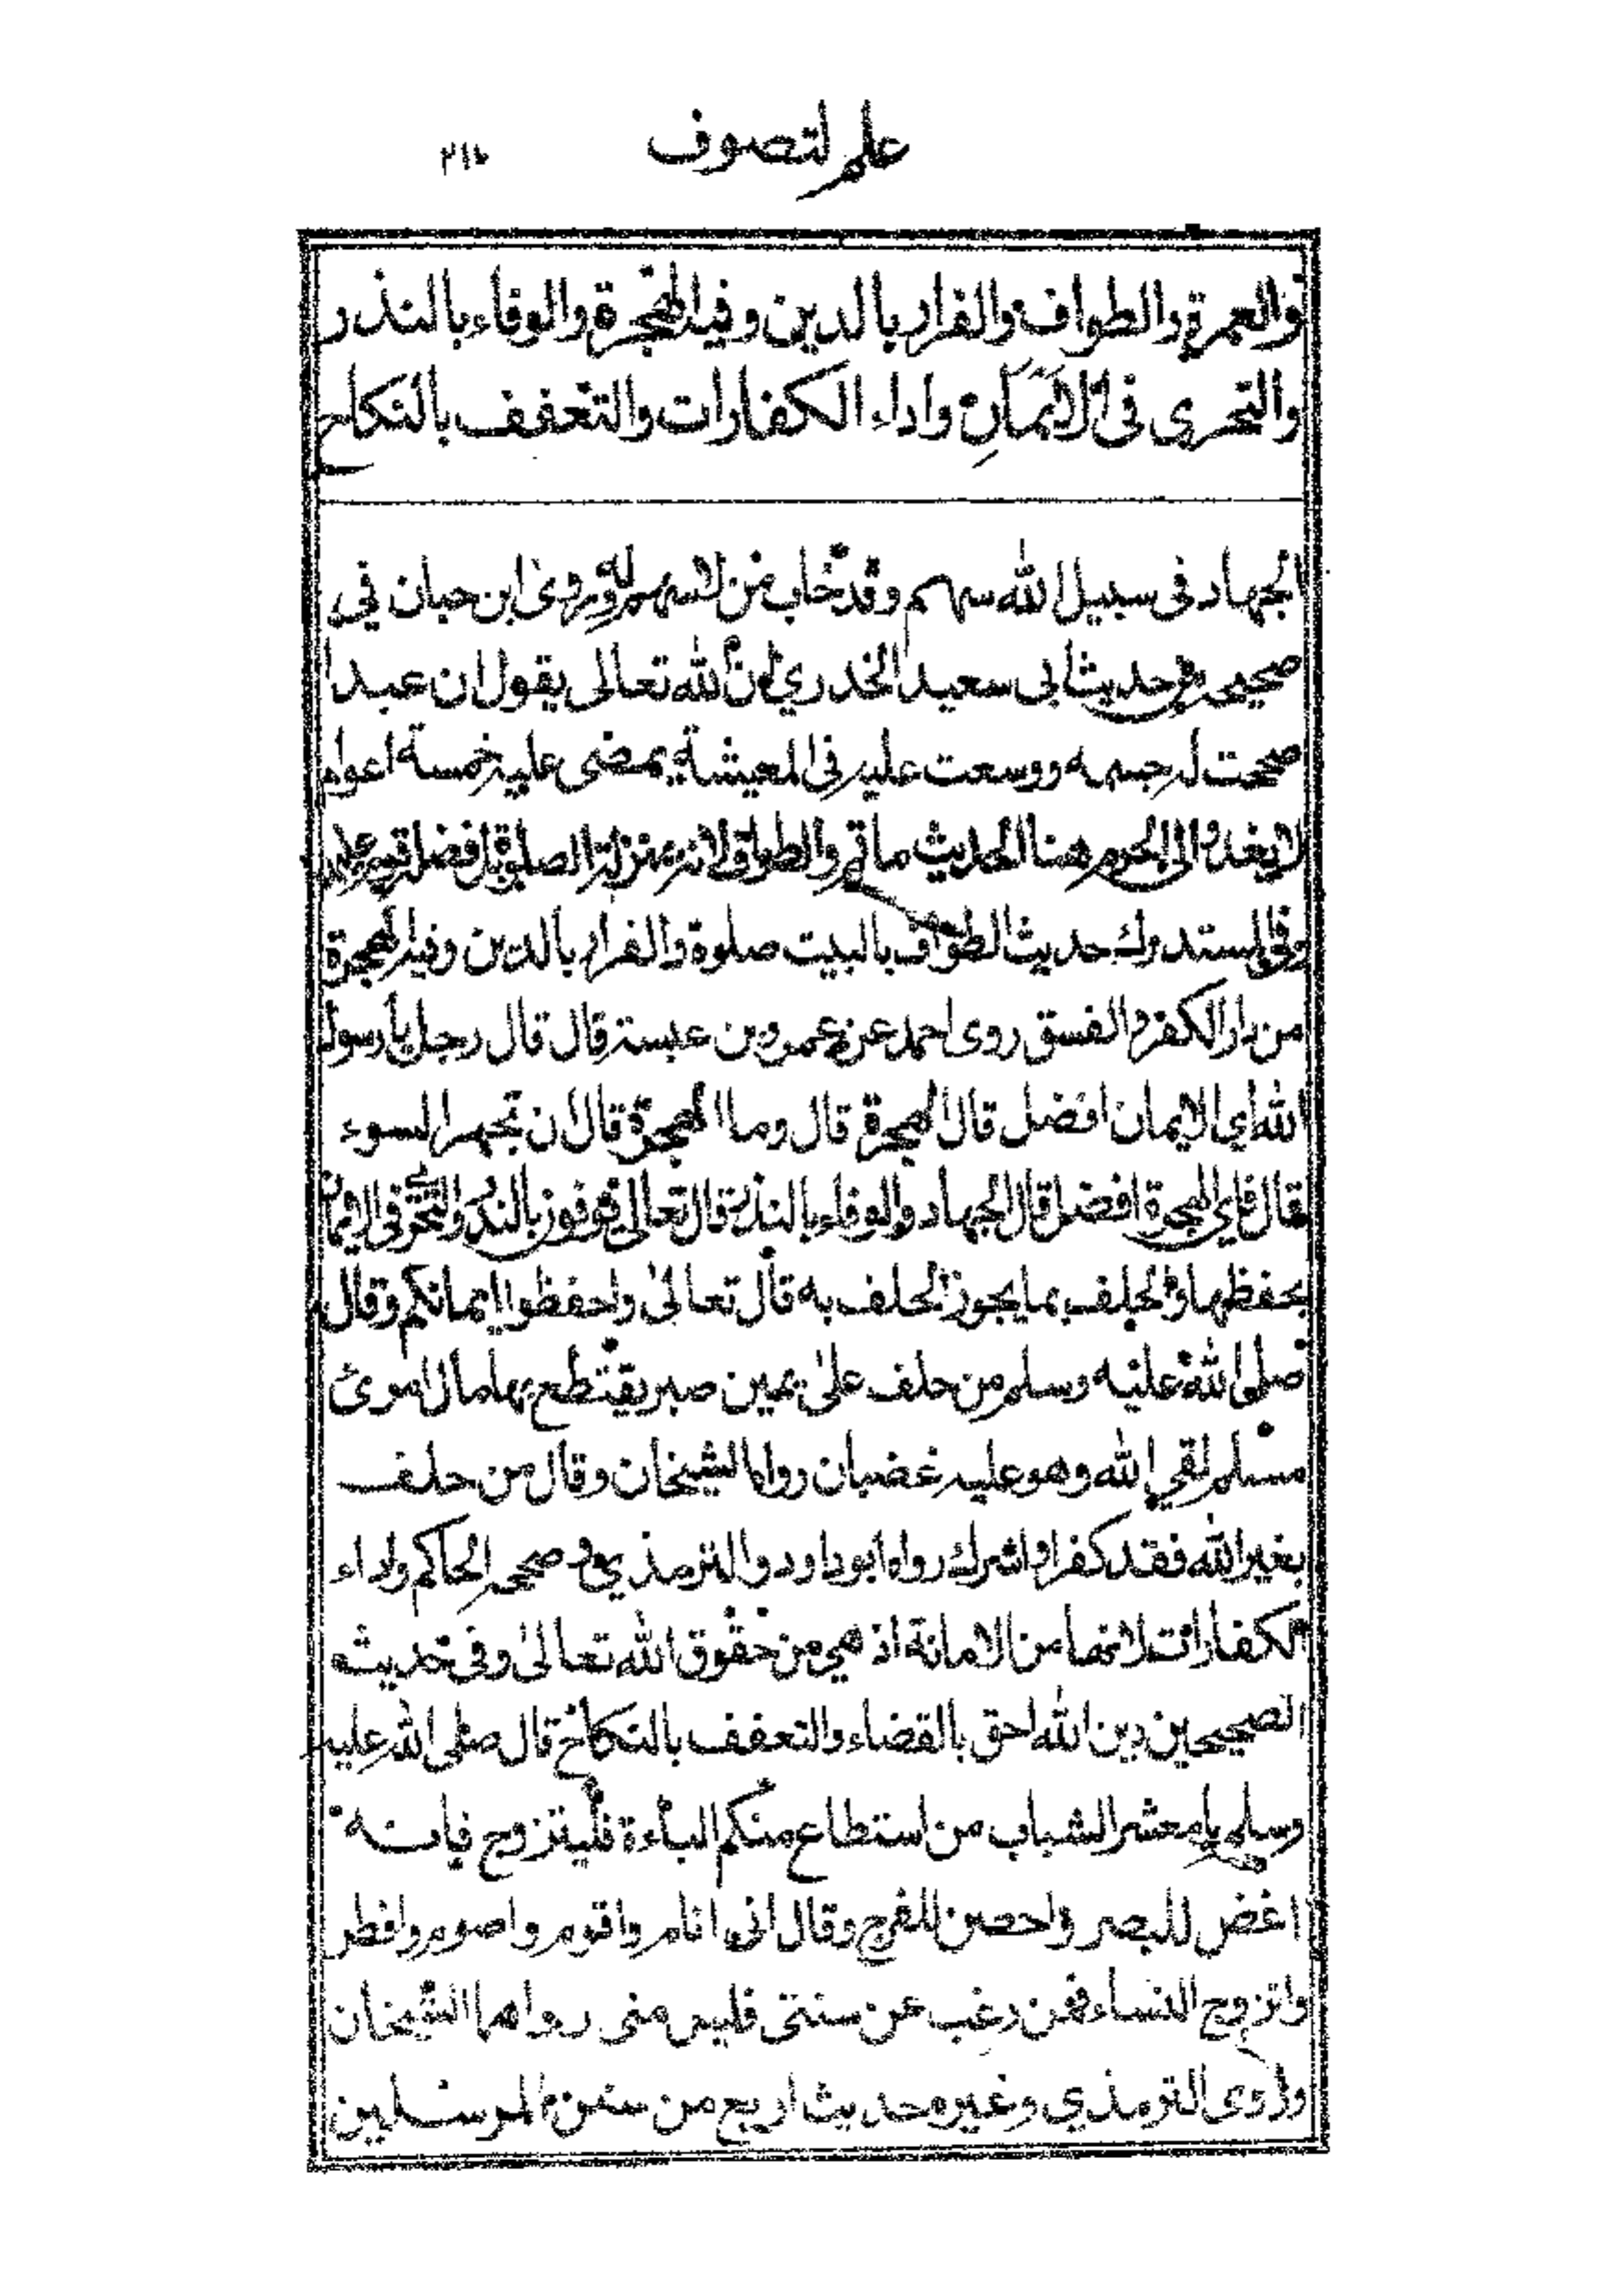 علم التصوف
والعمرة والطواف والفرار بالدين وفيه الهجرة والوفاء بالنذر
والتحرى فى الايمان واداء الكفارات والتعفف بالنكاح
الجهاد فى سبيل الله سهم وقد خاب من لا سهم له وروى ابن حبان في
صحيحه حديث ابى سعيد الخدري ان الله تعالى يقول ان عبدا
صححت له جسمه ووسعت عليه في المعيشة يمضى عليه خمسة اعوام
لا يغدو الى لمحروم هذا الحديث والطواف لانه بمنزلة الصلوة بل افضل
وفى المستدرك حديث الطواف بالبيت صلوة والفرار بالدين وفيه الهجرة
من دار الكفر والفسق روى احمد عن عمرو بن عبسة قال قال رجل يا رسول
الله اي الايمان افضل قال الهجرة قال وما الهجرة قال ان تهجر السوء
قال فاي الهجرة افضل قال الجهاد والوفاء بالنذر قال تعالى يوفون بالنذر والتحرى فى الايمان
بحفظها والحلف بما يجوز الحلف به قال تعالى واحفظوا ايمانكم وقال
صلى الله عليه وسلم من حلف على يمين صبر يقتطع بها مال امرئ
مسلم لقي الله وهو عليه غضبان رواه الشيخان وقال من حلف
بغير الله فقد كفر او اشرك رواه ابو داود والترمذي وصححه الحاكم واداء
الكفارات لانها من الامانة اذ هي من حقوق الله تعالى وفى حديث
الصحيحين دين الله احق بالقضاء والتعفف بالنكاح قال صلى الله عليه
وسلم يا معشر الشباب من استطاع منكم الباءة فليتزوج فانه
اغض للبصر واحصن للفرج وقال انى انام واقوم واصوم وافطر
واتزوج النساء فمن رغب عن سنتى فليس منى رواهما الشيخان
وروى الترمذي وغيره حديث اربع من سنن المرسلين